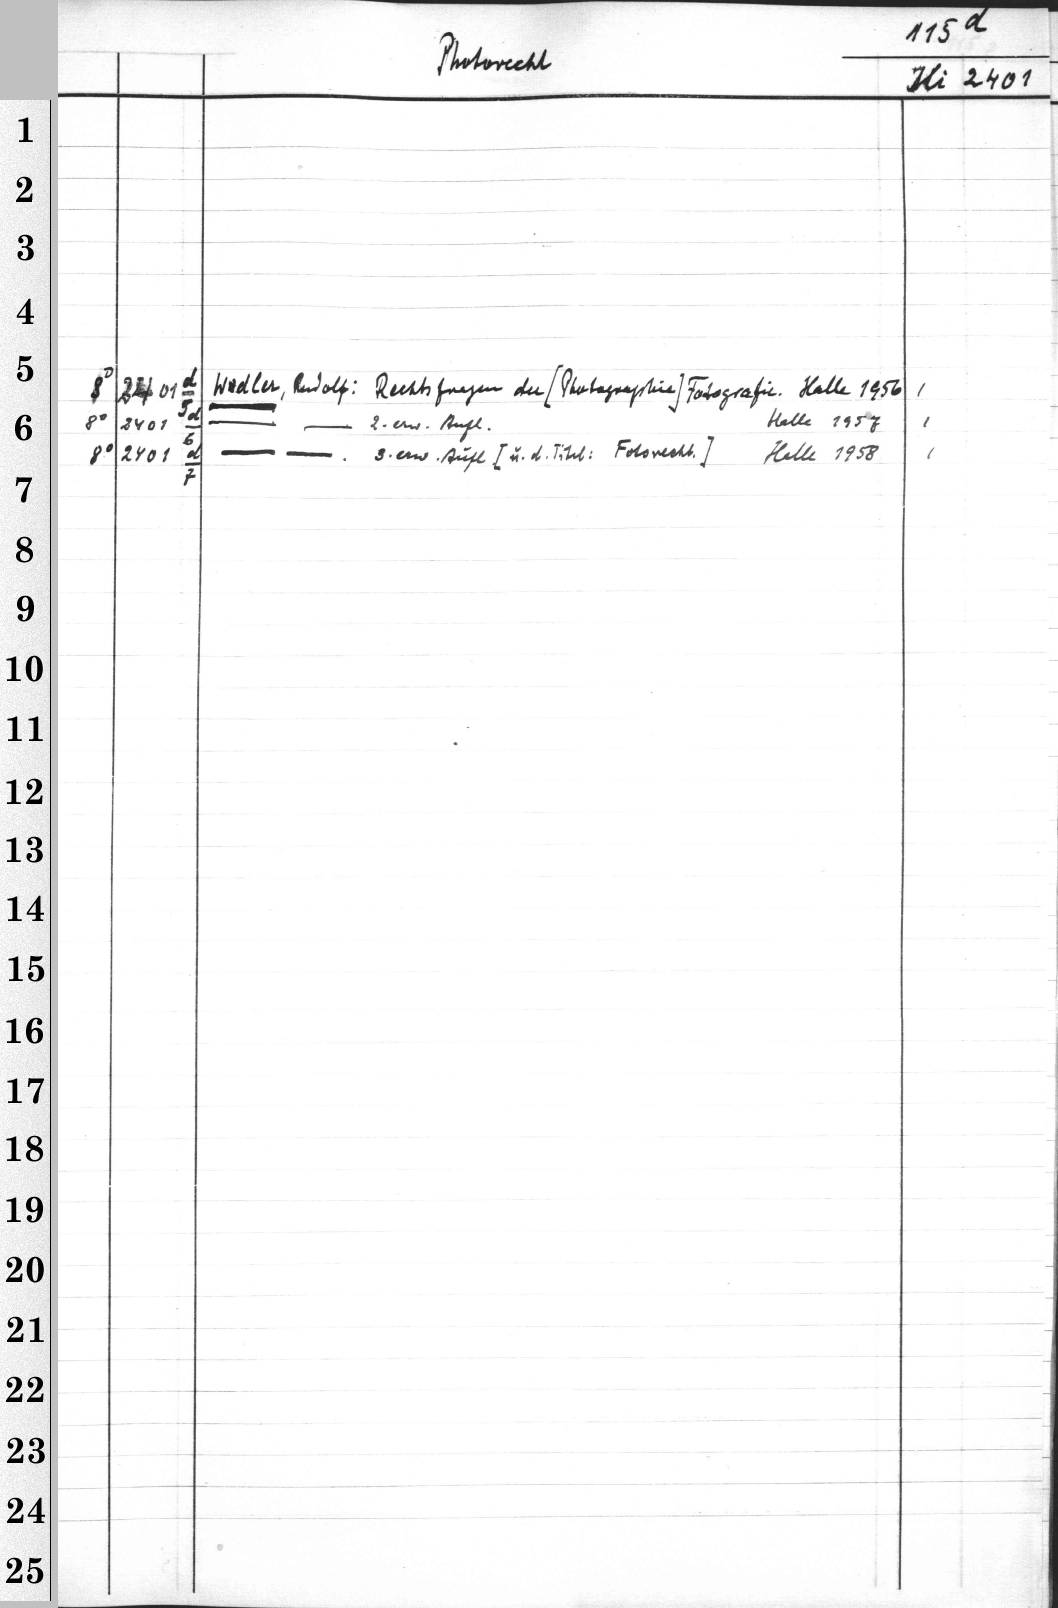 115 d
Photorecht
Hi 2401
1
2
3
4
5
8° 2401 d/5 Wedler, Rudolf: Rechtsfragen der [Photographie] Fotografie. Halle 1956 1
6
8° 2401 d/6 — — 2. erw. Aufl. Halle 1957 1
8° 2401 d/7 — — . 3. erw. Aufl [u. d. Titel: Fotorecht.] Halle 1958 1
7
8
9
10
11
12
13
14
15
16
17
18
19
20
21
22
23
24
25